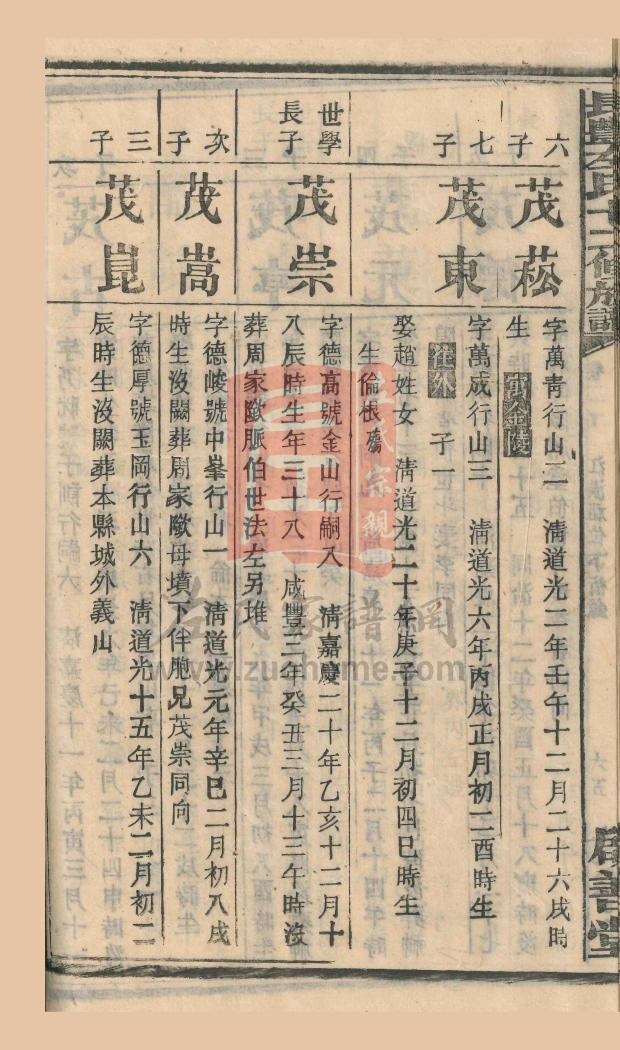 六子
茂菘
字萬青行山二　淸道光二年壬午十二月二十六戌時
生　萬金陵
七子
茂東
字萬成行山三　淸道光六年丙戌正月初二酉時生
往外　子一
娶趙姓女　淸道光二十年庚子十二月初四巳時生
生倫根
世學長子
茂崇
字德高號金山行嗣八　淸嘉慶二十年乙亥十二月十
八辰時生年三十八　咸豐三年癸丑三月十三午時沒
葬周家陂脈伯世法左另堆
次子
茂嵩
字德峻號中峯行山一　淸道光元年辛巳二月初八戌
時生沒闕葬周家陂母墳下伴胞兄茂崇同向
三子
茂崑
字德厚號玉岡行山六　淸道光十五年乙未二月初二
辰時生沒闕葬本縣城外義山
啟善堂
www.zuchome.com